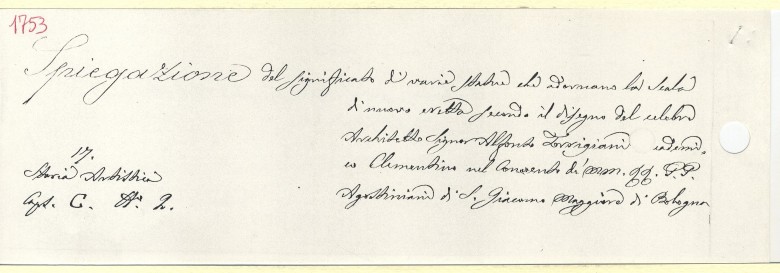 1753
1.
Spiegazione del significato di varie statue che adornano la Scala
di nuovo eretta secondo il disegno del celebre
Architetto Signor Alfonso Torrigiani cademi.
co Clementino nel Convento di MM. RR. P.P.
Agostiniani di S. Giacomo Maggiore di Bologna
17.
Storia Artistica
Cart. C. Nº 2.